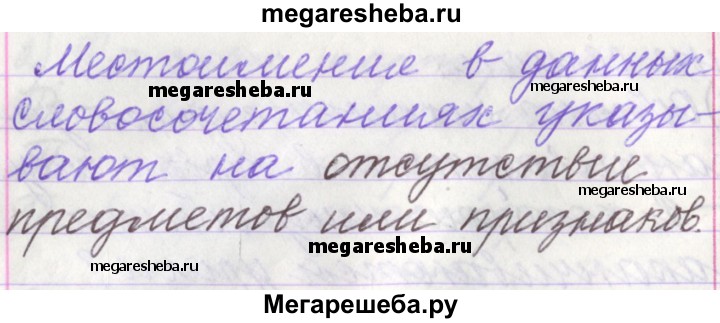 megaresheba.ru
Местоимение в данных
megaresheba.ru
megaresheba.ru
словосочетаниях указы-
вают на отсутствие
megaresheba.ru
предметов или признаков.
megaresheba.ru
megaresheba.ru
Мегарешеба.ру